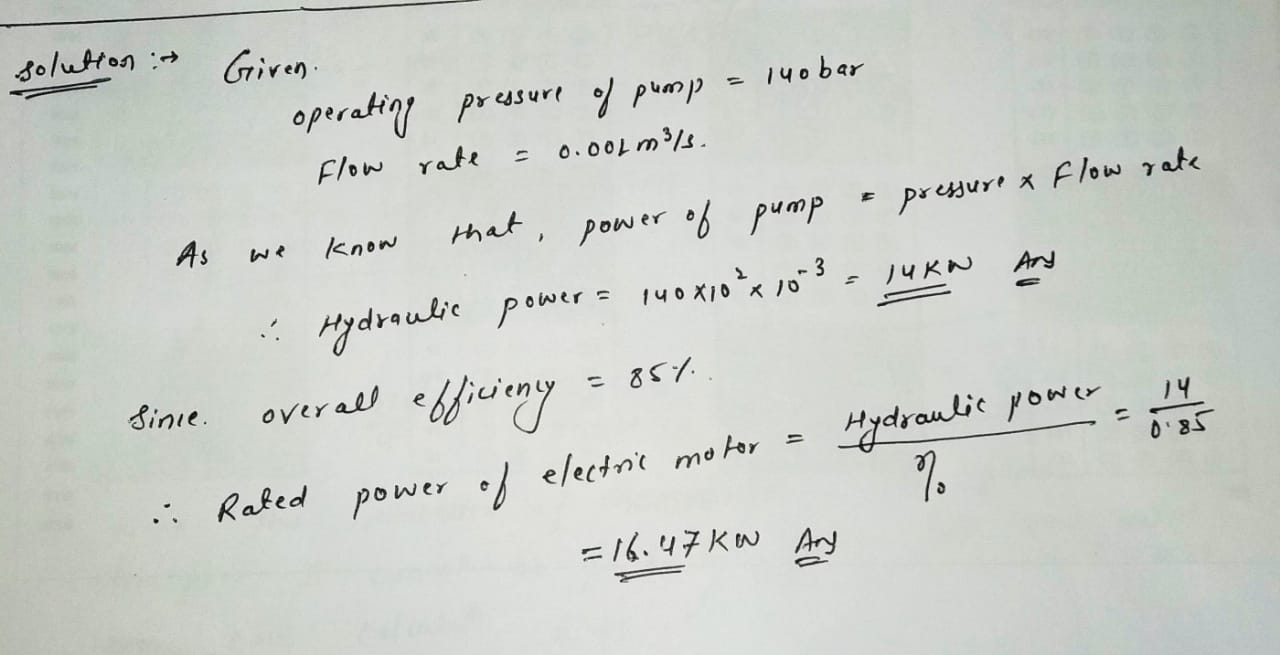 Solution :→ Given.
operating pressure of pump = 140 bar
Flow rate = 0.001 m³/s.
As we know that, power of pump = pressure x Flow rate
∴ Hydraulic power = 140 x 10² x 10⁻³ = 14 KW Ans
Sinie. overall efficieny = 85%.
∴ Rated power of electric motor = Hydraulic power / η₀ = 14 / 0.85
= 16.47 KW Ans